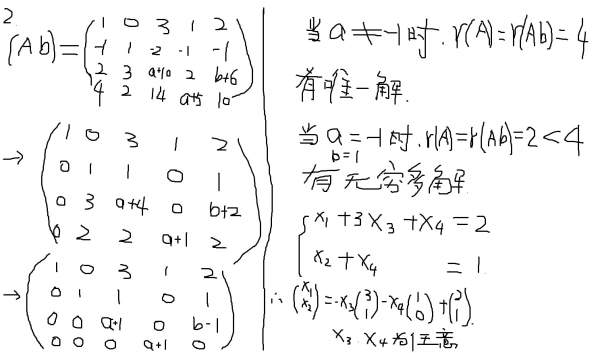 2.
(A b) = ( 1 0 3 1 2
-1 1 -2 -1 -1
2 3 a+10 2 b+6
4 2 14 a+5 10 )
→ ( 1 0 3 1 2
0 1 1 0 1
0 3 a+4 0 b+2
0 2 2 a+1 2 )
→ ( 1 0 3 1 2
0 1 1 0 1
0 0 a+1 0 b-1
0 0 0 a+1 0 )
当 a ≠ -1 时. r(A)=r(Ab)=4
有唯一解.
当 a=-1 时. r(A)=r(Ab)=2<4
b=1
有无穷多解.
{ x₁ + 3x₃ + x₄ = 2
x₂ + x₄ = 1
∴ (x₁ x₂) = -x₃(3 1) - x₄(1 0) + (2 1).
x₃. x₄ 为任意